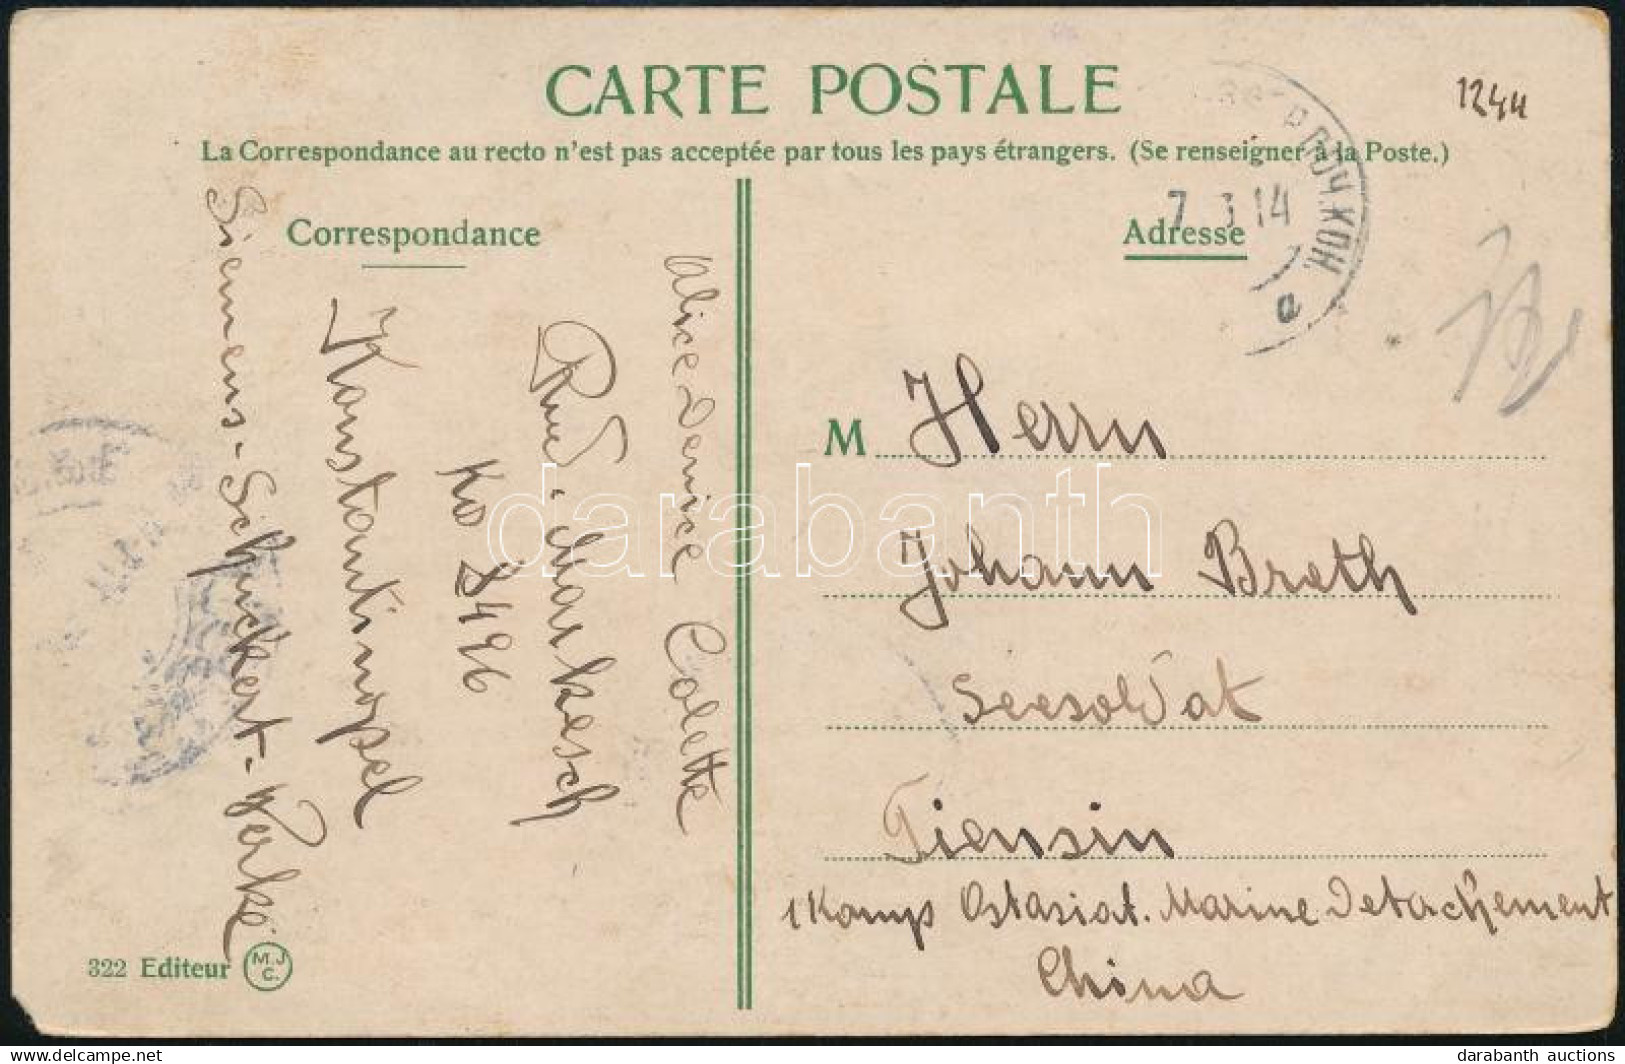 CARTE POSTALE
1244
La Correspondance au recto n'est pas acceptée par tous les pays étrangers. (Se renseigner à la Poste.)
Correspondance
Adresse
7 3 14
ПОЧ. КОН.
a
Alice Denice Colette
Rud. Markesch
Konstantinopel
Siemens-Schuckert-Werke
M Herrn
Johann Breth
Seesoldat
Tiensin
1 Komp Ostasiat. Marine Detachement
China
322 Editeur M.J.C.
darabanth
darabanth auctions